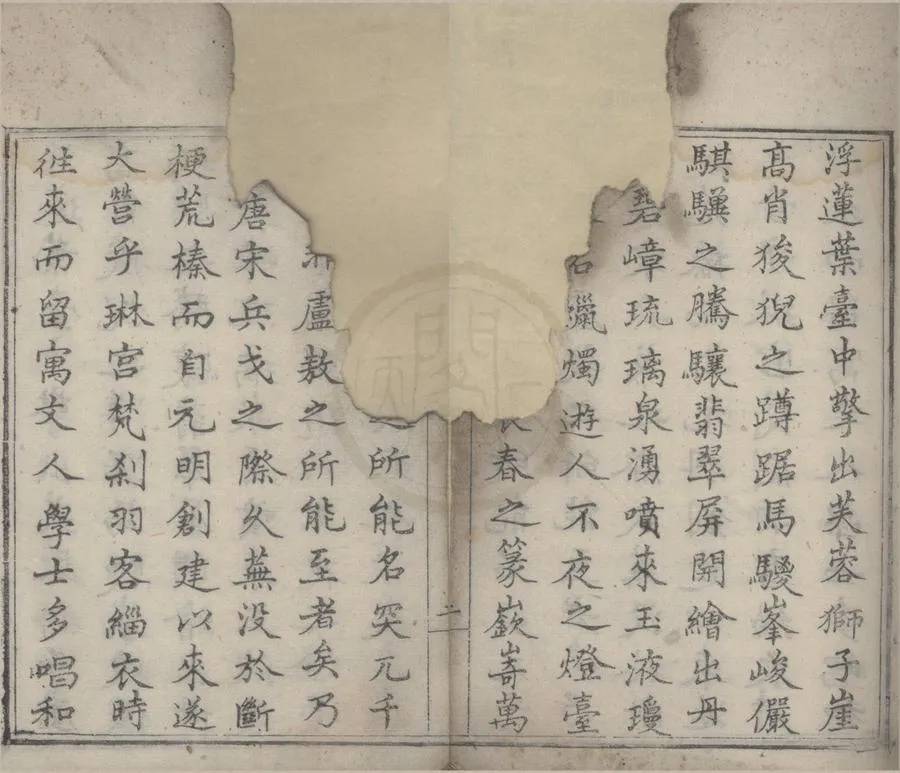 浮蓮葉臺中擎出芙蓉獅子崖
高肖狻猊之蹲踞馬騣峯峻儼
騏驥之騰驤翡翠屏開繪出丹
碧嶂琉璃泉湧噴來玉液瓊
蠟燭遊人不夜之燈臺
春之篆嶔嵜萬
二
所能名突兀千
盧敖之所能至者矣乃
唐宋兵戈之際久蕪没於斷
梗荒榛而自元明創建以來遂
大營乎琳宮梵刹羽客緇衣時
徃來而留寓文人學士多唱和